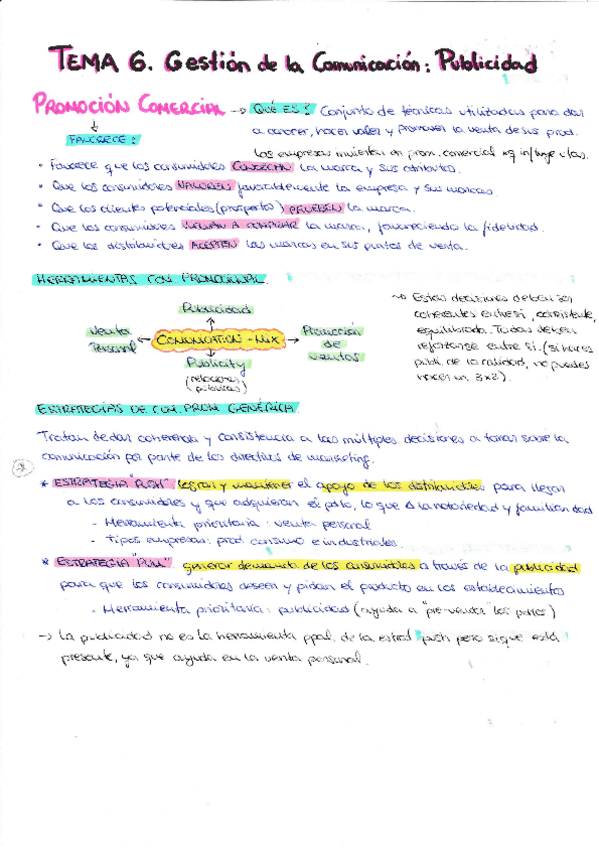 TEMA 6. Gestión de la Comunicación: Publicidad
PROMOCIÓN COMERCIAL → QUÉ ES? Conjunto de técnicas utilizadas para dar
a conocer, hacer valer y promover la venta de sus prod.
FAVORECE:
Las empresas invierten en prom. comercial xq influye
· Favorece que los consumidores CONOZCAN la marca y sus atributos.
· Que los consumidores VALOREN favorablemente la empresa y sus marcas.
· Que los clientes potenciales (prospectos) PRUEBEN la marca.
· Que los consumidores VUELVAN A COMPRAR la marca, favoreciendo la fidelidad.
· Que los distribuidores ACEPTEN las marcas en sus puntos de venta.
HERRAMIENTAS COM. PROMOCIONAL.
Publicidad
Venta Personal
COMUNICATION-MIX
Promoción de ventas
Publicity
(relaciones públicas)
→ Estas decisiones deben ser
coherentes entre si, consistente,
equilibrada. Todas deben
reforzarse entre si. (si haces
publi. de la calidad, no puedes
hacer un 3x2).
ESTRATEGIAS DE COM. PROM. GENÉRICA
Tratan de dar coherencia y consistencia a las múltiples decisiones a tomar sobre la
comunicación por parte de los directivos de marketing.
* ESTRATEGIA "PUSH" logran y mantener el apoyo de los distribuidores para llegar
a los consumidores y que adquieran el pdto, lo que Δ la notoriedad y familiaridad
- Herramienta prioritaria: venta personal
- Tipos empresas: prod. consumo e industriales.
* ESTRATEGIA "PULL" generar demanda de los consumidores a través de la publicidad
para que los consumidores deseen y pidan el producto en los establecimientos
- Herramienta prioritaria: publicidad (ayuda a "pre-vender" los pdtos)
→ La publicidad no es la herramienta ppal. de la estrat. push pero sigue está
presente, ya que ayuda en la venta personal.